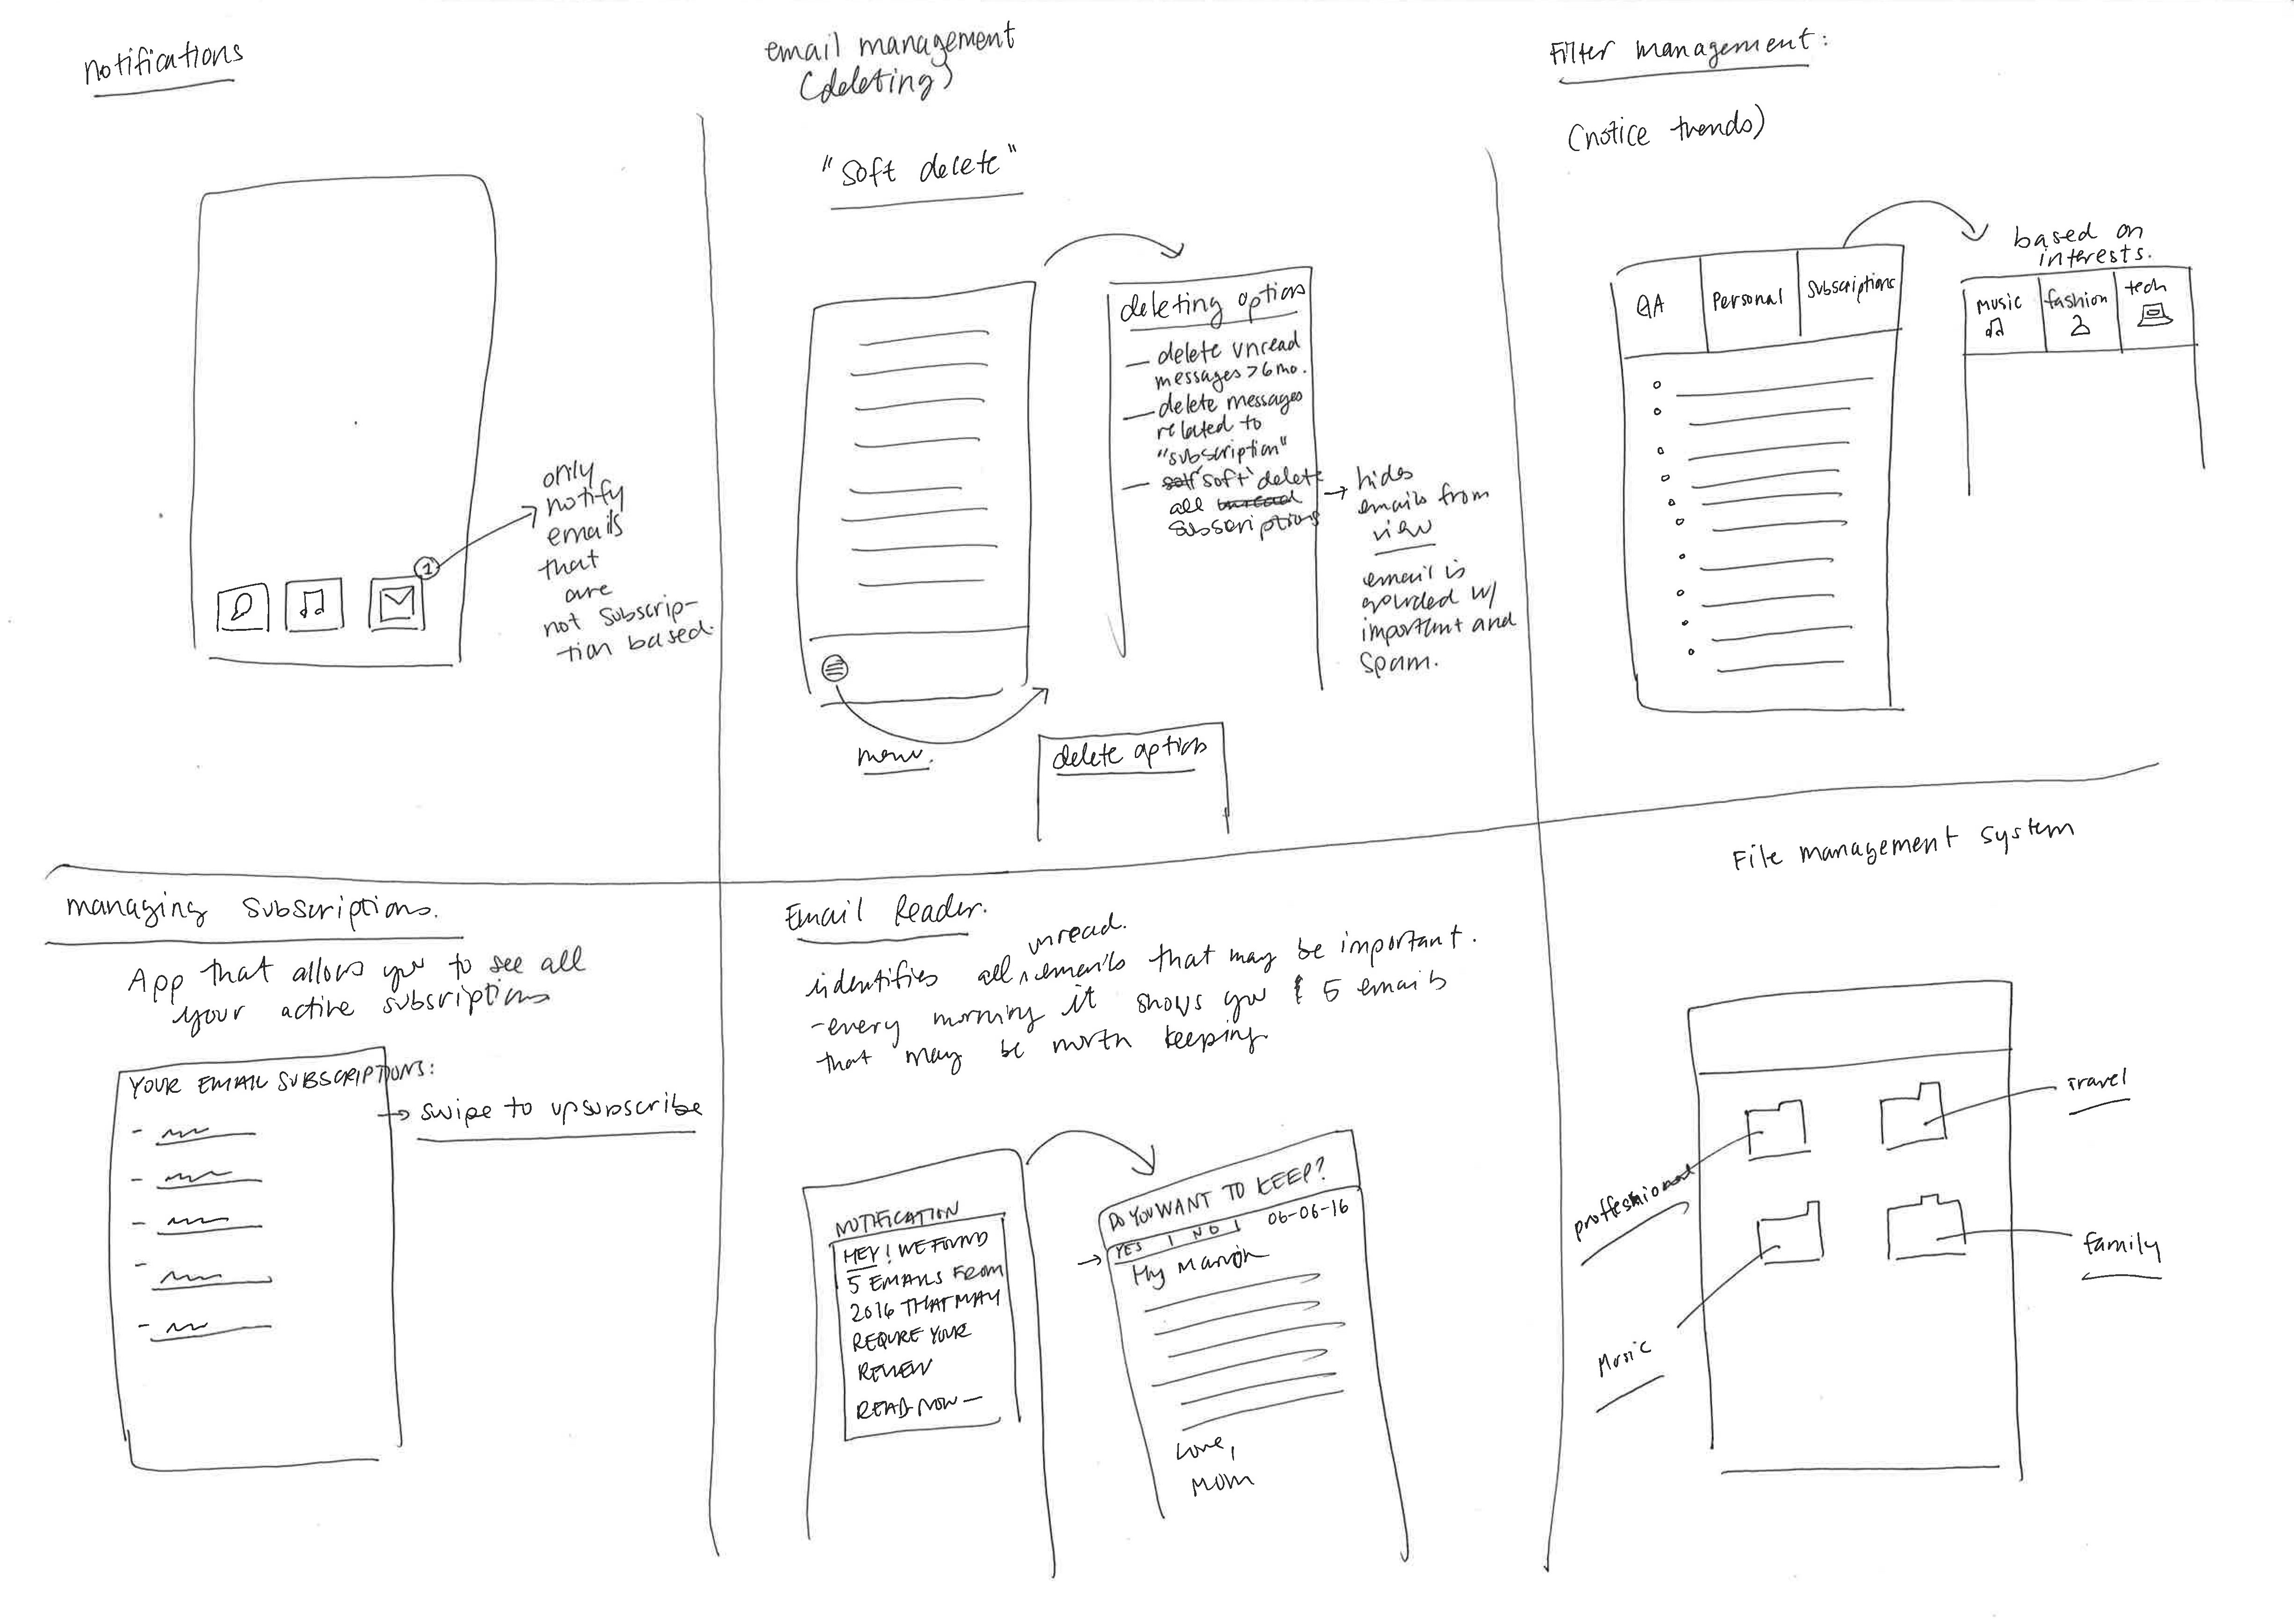 notifications
1
only
notify
emails
that
are
not subscrip-
tion based.
email management
(deleting)
"soft delete"
deleting options
— delete unread
messages >6mo.
— delete messages
related to
"subscription"
— "soft" delete
all
subscriptions
→ hides
emails from
view
email is
important and
spam.
menu.
delete options
Filter management:
(notice trends)
QA
Personal
Subscriptions
based on
interests.
music
fashion
tech
managing subscriptions.
App that allows you to see all
your active subscriptions
YOUR EMAIL SUBSCRIPTIONS:
→ swipe to upsubscribe
Email Reader.
unread.
identifies all emails that may be important.
- every morning it shows you 5 emails
that may be worth keeping
NOTIFICATION
HEY! WE FOUND
5 EMAILS FROM
2016 THAT MAY
REQURE YOUR
REVIEW
READ NOW —
DO YOU WANT TO KEEP?
YES | NO |
06-06-16
Hy
Love,
MOM
File management system
travel
proffeshional
family
Music